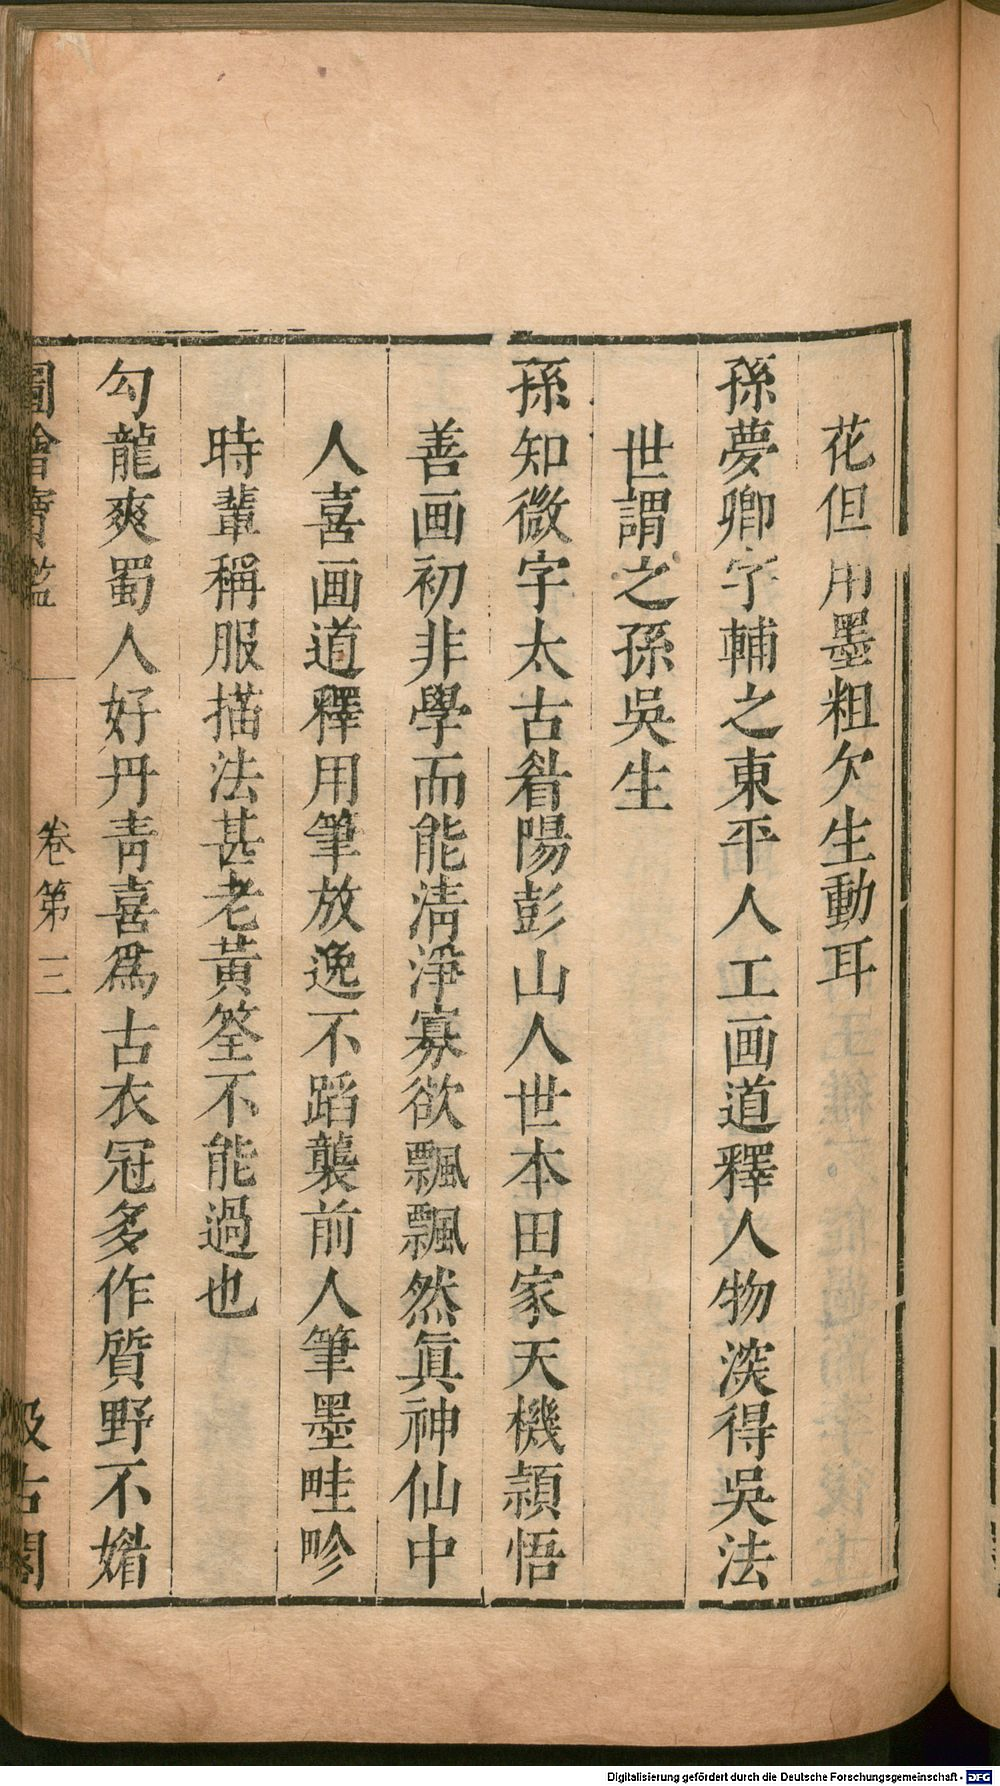 花但用墨粗欠生動耳
孫夢卿字輔之東平人工画道釋人物深得吳法
世謂之孫吳生
孫知微字太古眉陽彭山人世本田家天機頴悟
善画初非學而能清淨寡欲飄飄然眞神仙中
人喜画道釋用筆放逸不蹈襲前人筆墨畦畛
時輩稱服描法甚老黃筌不能過也
勾龍爽蜀人好丹青喜爲古衣冠多作質野不媚
圖繪寶鑑 卷第三 汲古閣
Digitalisierung gefördert durch die Deutsche Forschungsgemeinschaft - DFG